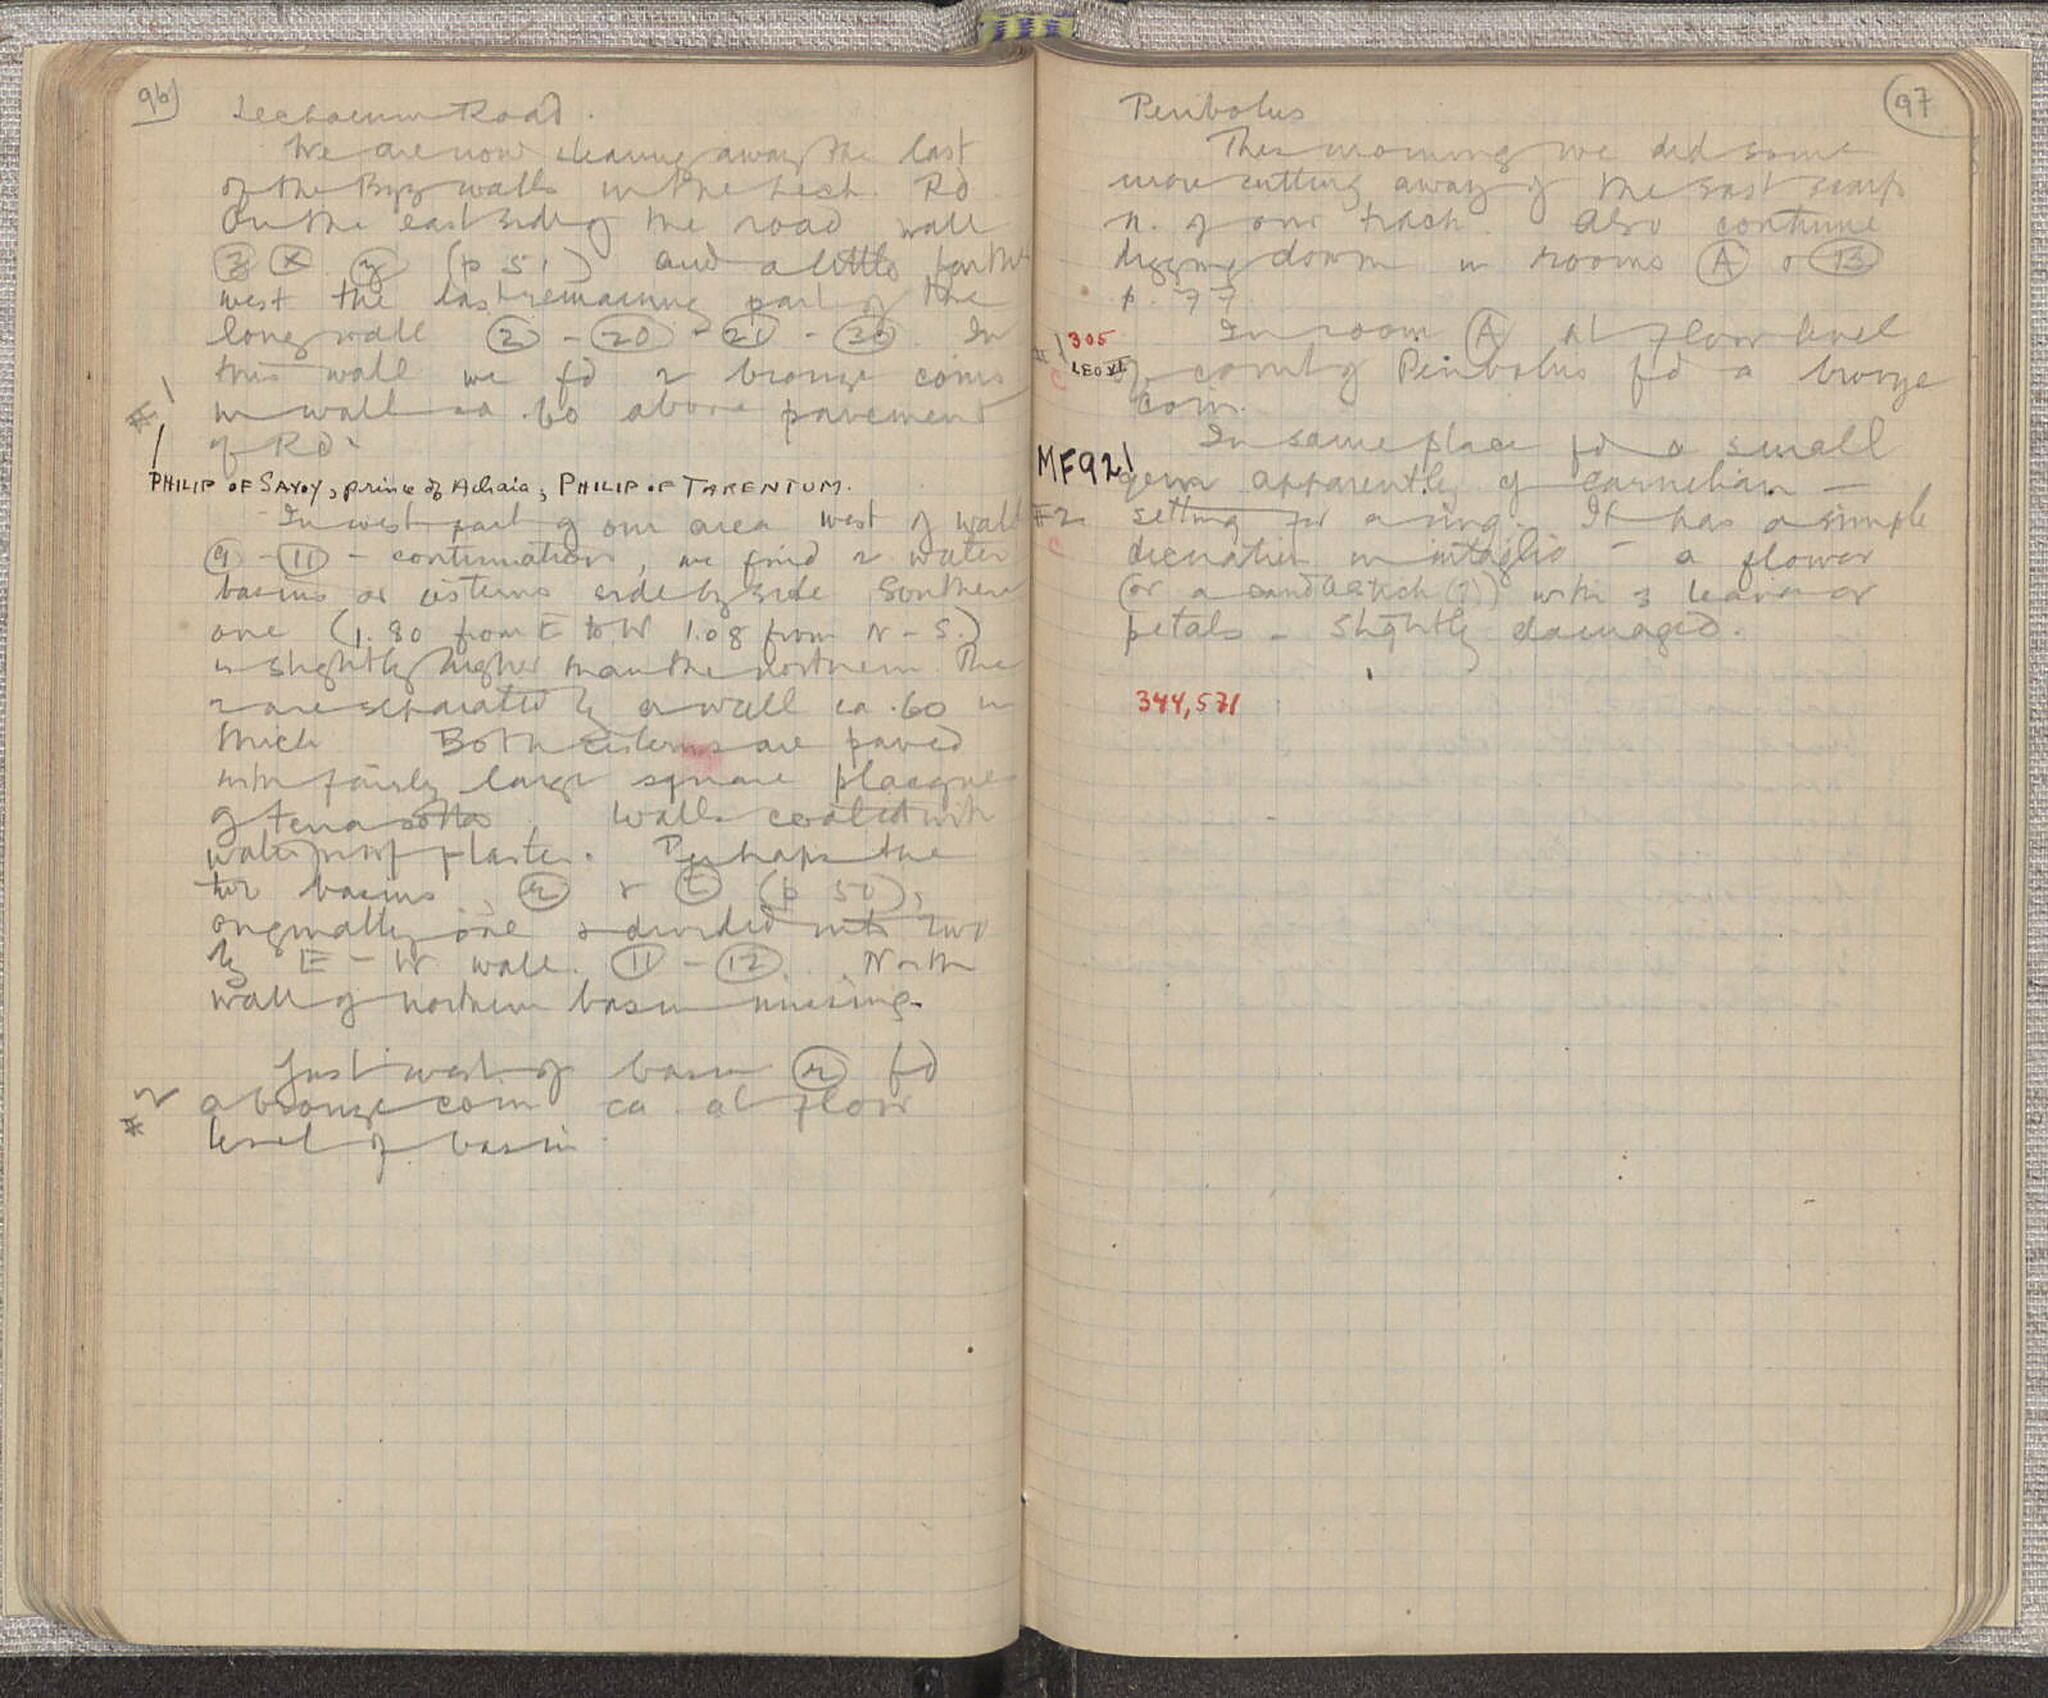 96
Lechaeum Road.
We are now clearing away the last
of the Byz walls in the Lech. Rd
On the east side of the road wall
z x y (p 51) and a little farther
west the last remaining part of the
long wall 2 - 20 - 21 - 30 In
this wall we fd 2 bronze coins
#1 in wall ca .60 above pavement
of Rd.
PHILIP OF SAVOY, prince of Achaia; PHILIP OF TARENTUM.
In west part of our area west of wall
9 - 11 - continuation, we find 2 water
basins or cisterns side by side Southern
one (1.80 from E to W 1.08 from N - S.)
is slightly higher than the northern. The
2 are separated by a wall ca .60 m
thick Both cisterns are paved
with fairly large square plaques
of terracotta, walls coated with
waterproof plaster. Perhaps the
two basins, r & t (p 50),
originally one & divided into two
by E - W wall. 11 - 12. North
wall of northern basin missing.
Just west of basin r fd
#2 a bronze coin ca at floor
level of basin
97
Peribolus
This morning we did some
more cutting away of the east scarp
n. of our track. Also continue
digging down in rooms A & B
p. 77
In room A at floor level
#1 305
LEO VI
C
of court of Peribolus fd a bronze
coin.
In same place fd a small
MF921
gem apparently of carnelian —
#2 setting for a ring. It has a simple
C
decoration in intaglio - a flower
(or a candlestick (?)) with 3 leaves or
petals - slightly damaged.
344,571